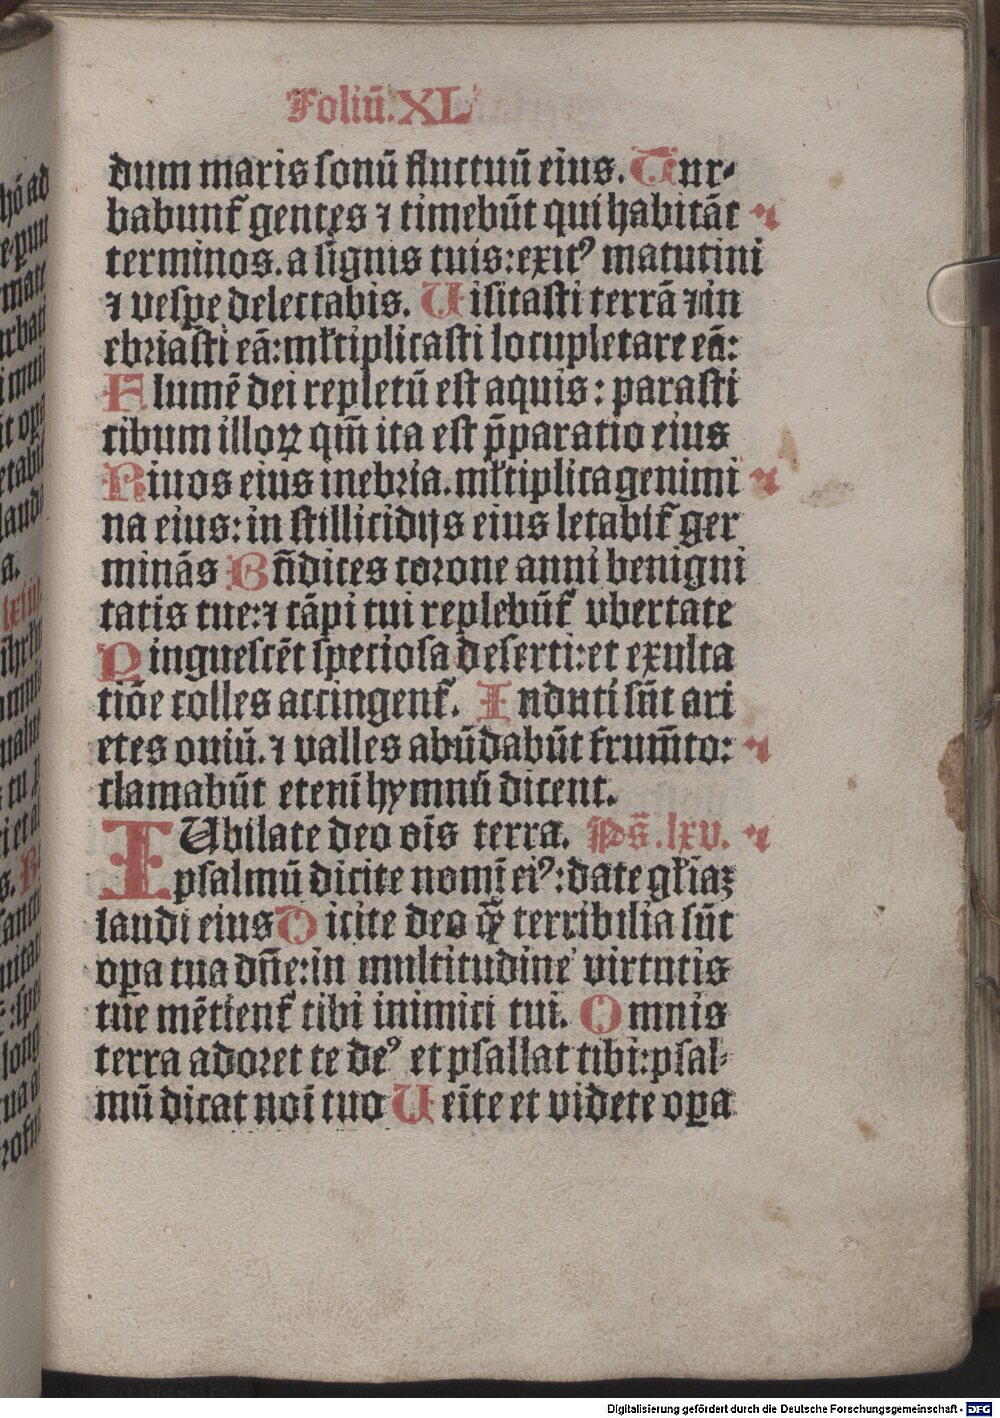 Foliū.XL
dum maris ſonū fluctuū eius. Tur⸗
babunt᷑ gentęs ⁊ timebūt qui habitāt
terminos. a ſignis tuis: exitꝰ matutini
⁊ veſpe delectabis. Uiſitaſti terrā ⁊ in
ebriaſti eā: ml̓tiplicaſti locupletare eā:
Flumē dei repletū eſt aquis: paraſti
cibum illoꝝ qm̄ ita eſt p̄paratio eius
Riuos eius inebria. ml̓tiplica genimi
na eius: in ſtillicidijs eius letabit᷑ ger
minās Bn̄dices corone anni benigni
tatis tue: ⁊ cāpi tui replebūt᷑ vbertate
Pingueſcēt ſpecioſa deſerti: et exulta
tiōe colles accingent᷑. Induti ſūt ari
etes ouiū. ⁊ valles abūdabūt frum̄to:
clamabūt etenī hymnū dicent.
IUbilate deo oīs terra. Pš.lxv.
pſalmū dicite nomī eiꝰ: date gl̓iaꝫ
laudi eius Dicite deo q̄ꝫ terribilia ſūt
oꝑa tua dn̄e: in multitudine virtutis
tue mētient᷑ tibi inimici tui. Omnis
terra adoret te deꝰ et pſallat tibi: pſal⸗
mū dicat noī tuo Ueīte et videte oꝑa
Digitalisierung gefördert durch die Deutsche Forschungsgemeinschaft - DFG